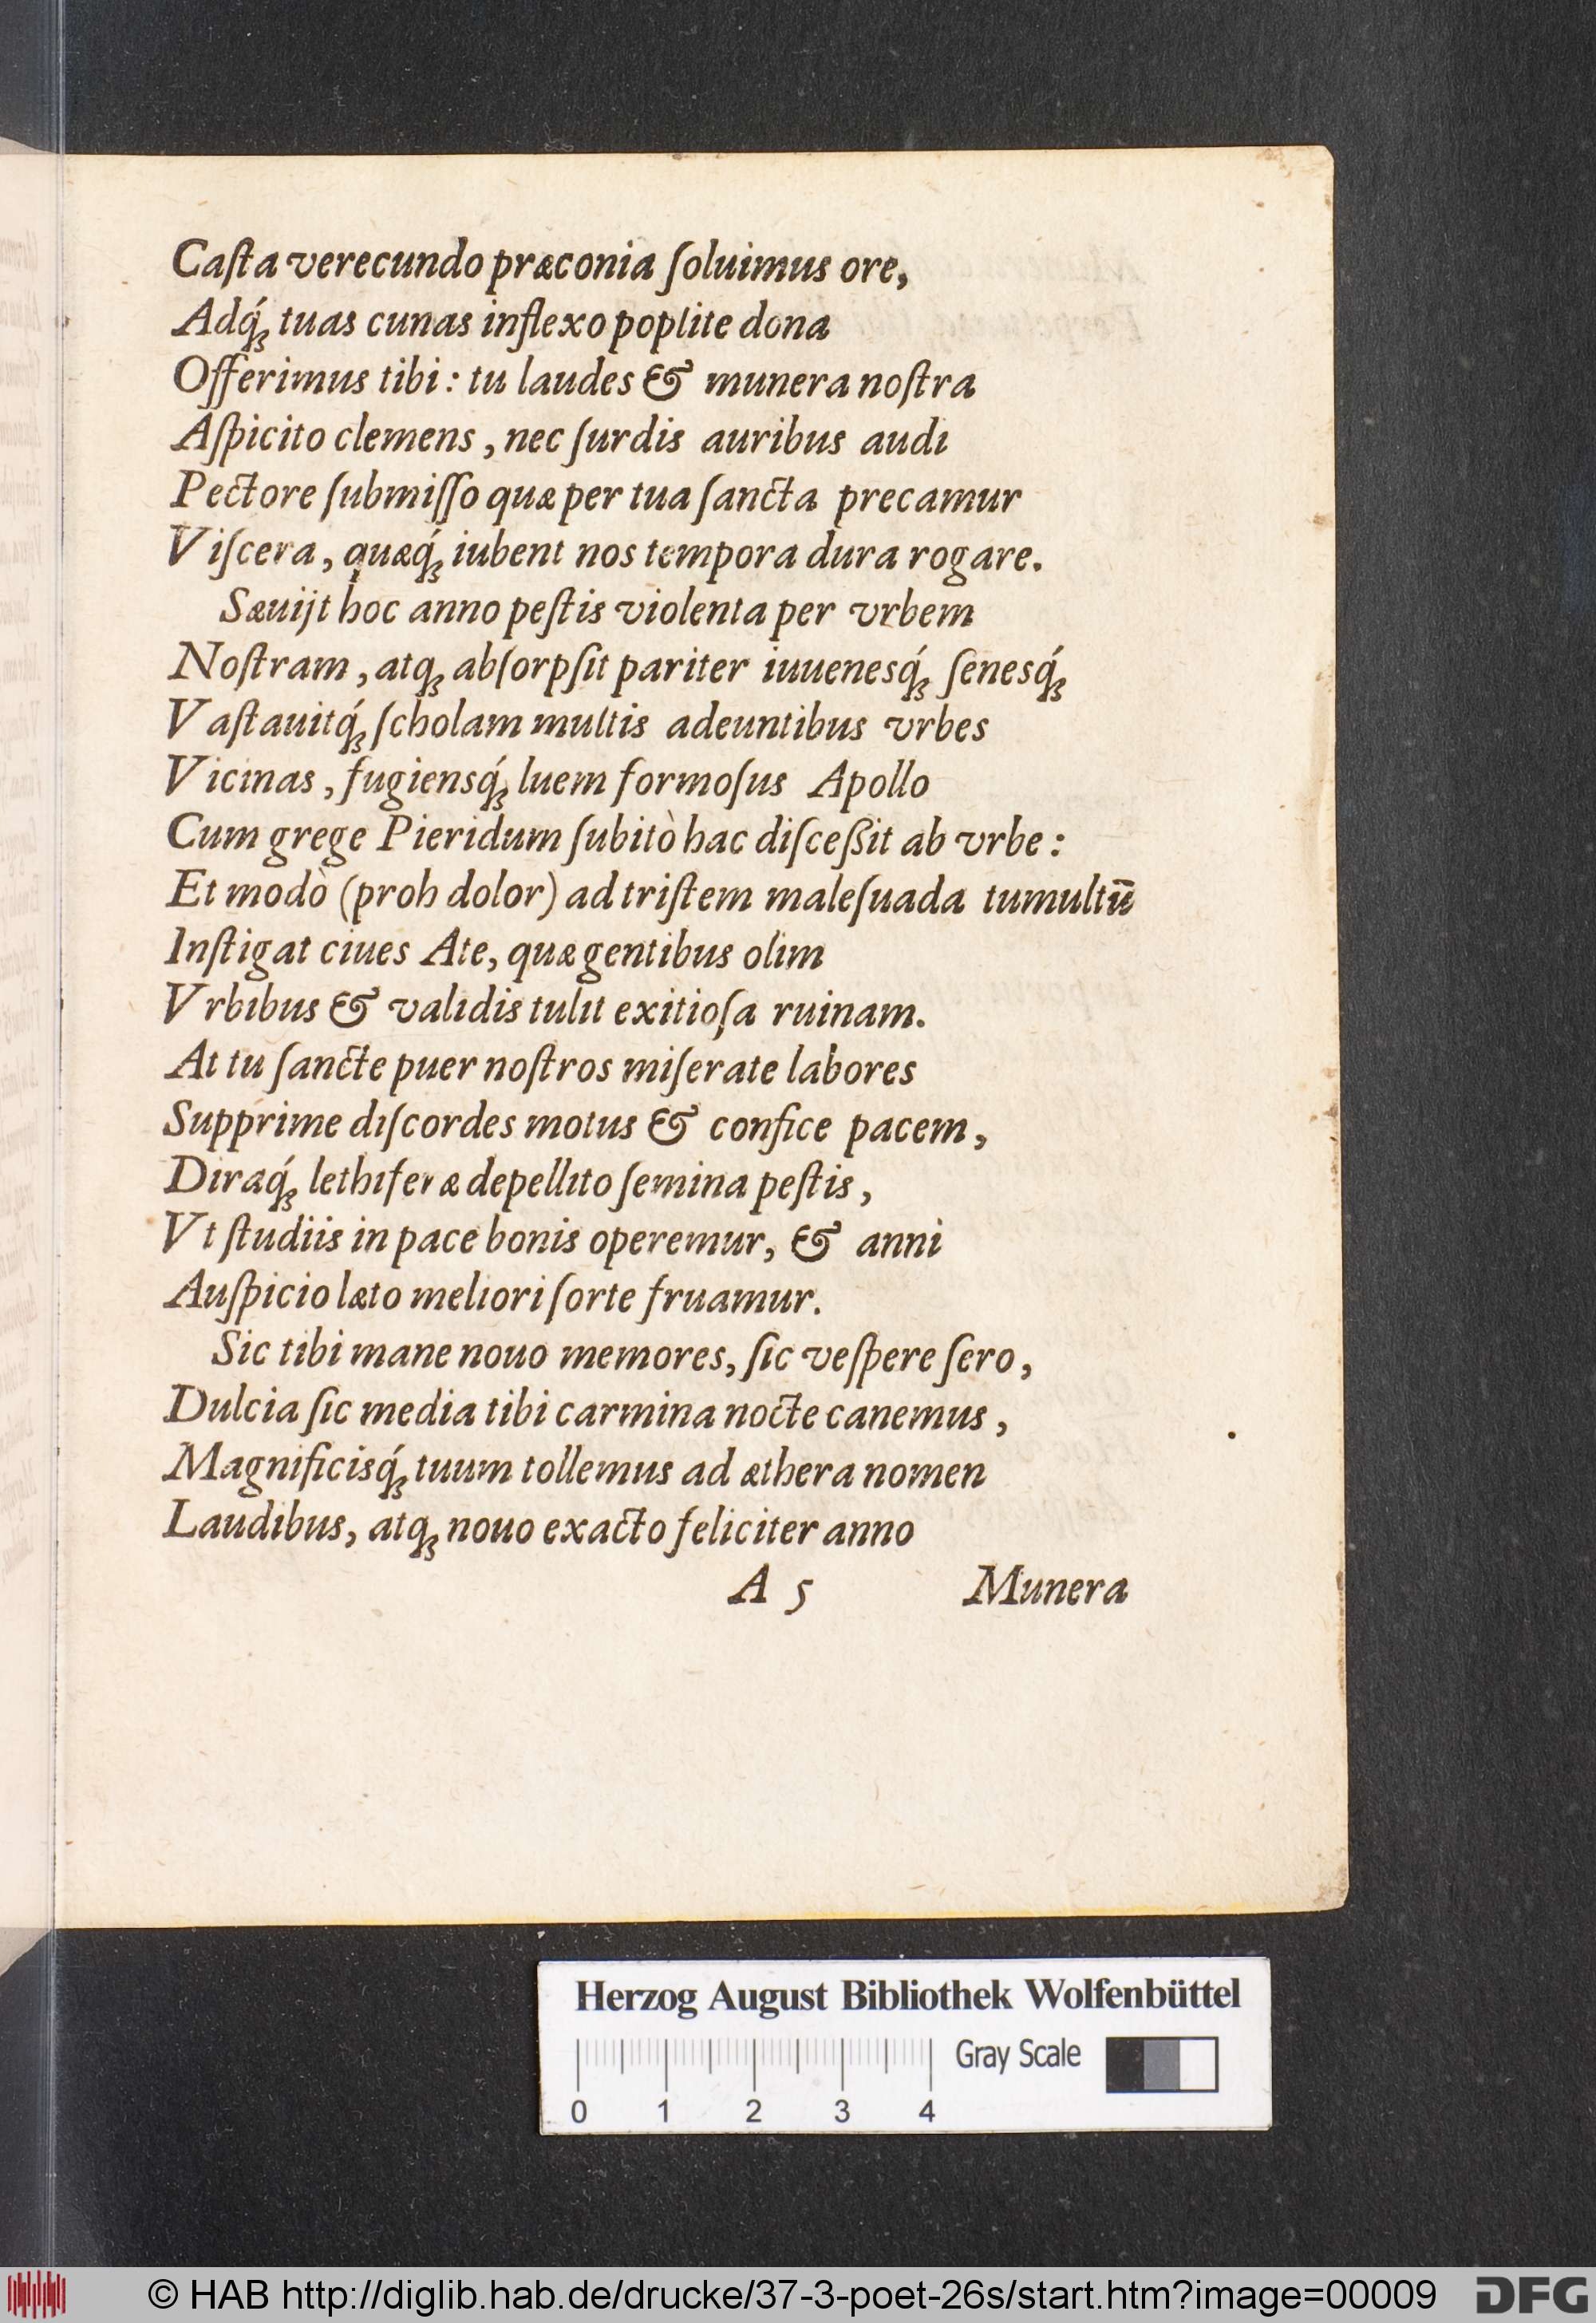 Caſta verecundo præconia ſoluimus ore,
Adq́ꝫ tuas cunas inflexo poplite dona
Offerimus tibi: tu laudes & munera noſtra
Aſpicito clemens, nec ſurdis auribus audi
Pectore ſubmiſſo quæ per tua ſancta precamur
Viſcera, quæq́ꝫ iubent nos tempora dura rogare.
Sæuijt hoc anno peſtis violenta per vrbem
Noſtram, atqꝫ abſorpſit pariter iuuenesq́ꝫ ſenesq́ꝫ
Vaſtauitq́ꝫ ſcholam multis adeuntibus vrbes
Vicinas, fugiensq́ꝫ luem formoſus Apollo
Cum grege Pieridum ſubitò hac diſceßit ab vrbe:
Et modò (proh dolor) ad triſtem maleſuada tumultū
Inſtigat ciues Ate, quæ gentibus olim
Vrbibus & validis tulit exitioſa ruinam.
At tu ſancte puer noſtros miſerate labores
Supprime diſcordes motus & confice pacem,
Diraq́ꝫ lethiferæ depellito ſemina peſtis,
Vt ſtudiis in pace bonis operemur, & anni
Auſpicio læto meliori ſorte fruamur.
Sic tibi mane nouo memores, ſic veſpere ſero,
Dulcia ſic media tibi carmina nocte canemus,
Magnificisq́ꝫ tuum tollemus ad æthera nomen
Laudibus, atqꝫ nouo exacto feliciter anno
A 5 Munera
Herzog August Bibliothek Wolfenbüttel
Gray Scale
0 1 2 3 4
© HAB http://diglib.hab.de/drucke/37-3-poet-26s/start.htm?image=00009
DFG